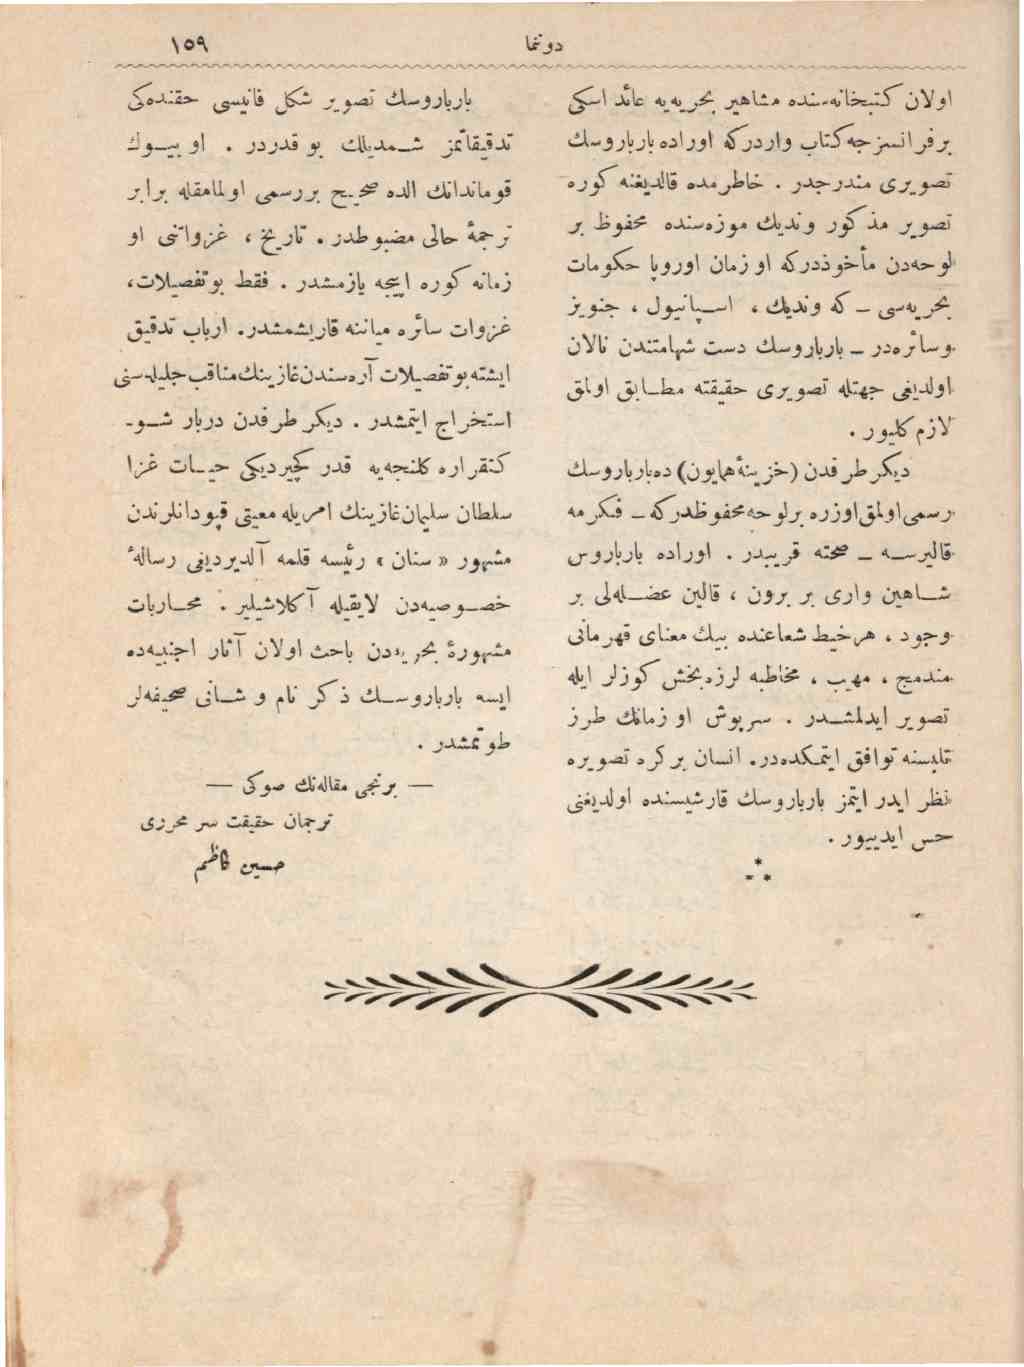 دوننما
١٥٩
اولان كتبخانه‌سنده مشاهير بحريه‌يه عائد اسكى
برفرانسزجه كتاب واردركه اوراده بارباروسك
تصويرى مندرجدر . خاطرمده قالديغنه كوره
تصوير مذكور ونديك موزه‌سنده محفوظ بر
لوحه‌دن مأخوذدركه او زمان اوروپا حكومات
بحريه‌سى ـ كه ونديك ، اسـپانيول ، جنويز
وسائره‌در ـ بارباروسك دست شهامتندن نالان
اولديغى جهتله تصويرى حقيقته مطـابق اولمق
لازم كليور .
ديكر طرفدن (خزينهٔ همايون) ده بارباروسك
رسمى اولمق اوزره برلوحه محفوظدركه ـ فكرمه
قاليرسـه ـ صحته قريبدر . اوراده بارباروس
شـاهين وارى بر برون ، قالين عضـله‌لى بر
وجود ، هرخيط شعاعنده بيك معناى قهرمانى
مندمج ، مهيب ، مخاطبه لرزه‌بخش كوزلر ايله
تصوير ايدلمشـدر . سرپوش او زمانك طرز
تلبسنه توافق ايتمكده‌در. انسان بركره تصويره
نظر ايدر ايتمز بارباروسك قارشيسنده اولديغنى
حس ايدييور .
***
بارباروسك تصوير شكل فانيسى حقنده‌كى
تدقيقاتمز شـمديلك بو قدردر . او بيـوك
قوماندانك الده صحيح بررسمى اولمامقله برابر
ترجمهٔ حالى مضبوطدر . تاريخ ، غزواتنى او
زمانه كوره اييجه يازمشدر . فقط بو تفصيلات،
غزوات سائره مياننه قاريشمشدر. ارباب تدقيق
ايشته بو تفصيلات آره‌سندن غازينك مناقب جليله‌سنى
استخراج ايتمشدر . ديكر طرفدن دربار شـو-
كتقراره كلنجه‌يه قدر كچيرديكى حيـات غزا
سلطان سليمان غازينك امريله معيتى قپودانلرندن
مشهور « سنان » رئيسه قلمه آلديرديغى رسالهٔ
خصـوصيه‌دن لايقيله آكلاشيلير . محـاربات
مشهورهٔ بحريه‌دن باحث اولان آثار اجنبيه‌ده
ايسه بارباروسـك ذكر نام و شـانى صحيفه‌لر
طوتمشدر .
— برنجى مقاله‌نك صوكى —
ترجمان حقيقت سر محررى
حسين كاظم